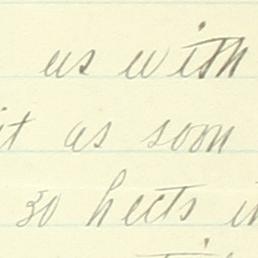 us with
it as soon
30 hects